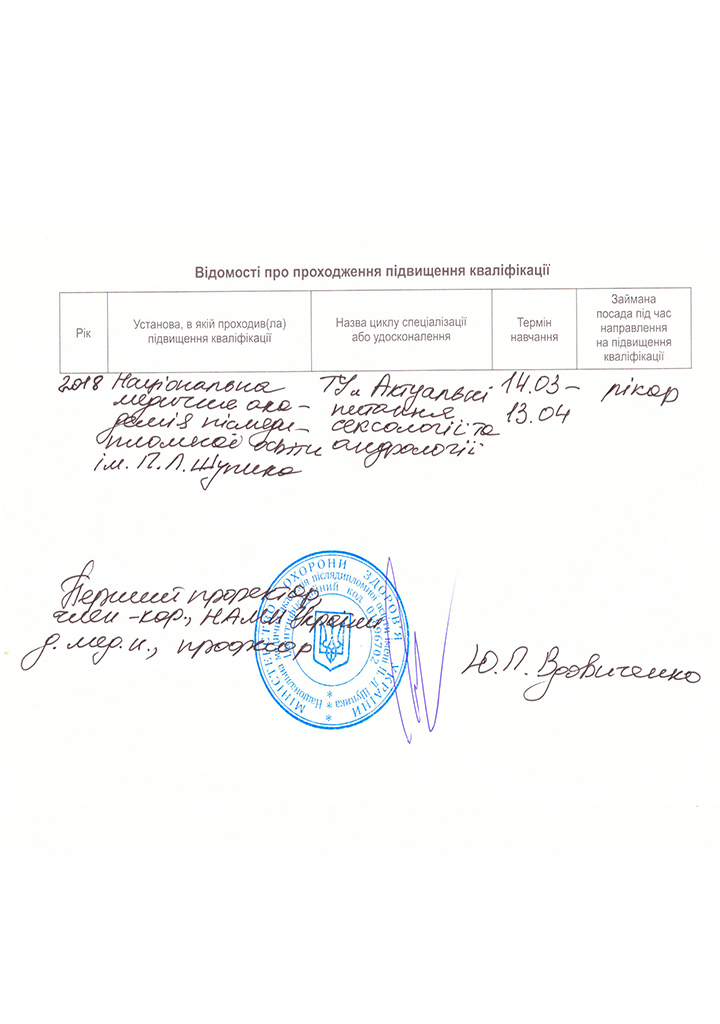 Відомості про проходження підвищення кваліфікації
Рік
Установа, в якій проходив(ла)
підвищення кваліфікації
Назва циклу спеціалізації
або удосконалення
Термін
навчання
Займана
посада під час
направлення
на підвищення
кваліфікації
2018 Національна
медична ака-
демія післяди-
пломної освіти
ім. П.Л. Шупика
ТУ „Актуальні
питання
сексології та
андрології
14.03 –
13.04
лікар
Перший проректор,
член-кор., НАМН України
д. мед. н., професор
Ю.П. Вдовиченко
МІНІСТЕРСТВО ОХОРОНИ ЗДОРОВ'Я УКРАЇНИ
Національна медична академія післядипломної освіти імені П.Л. Шупика
Ідентифікаційний код 01896702